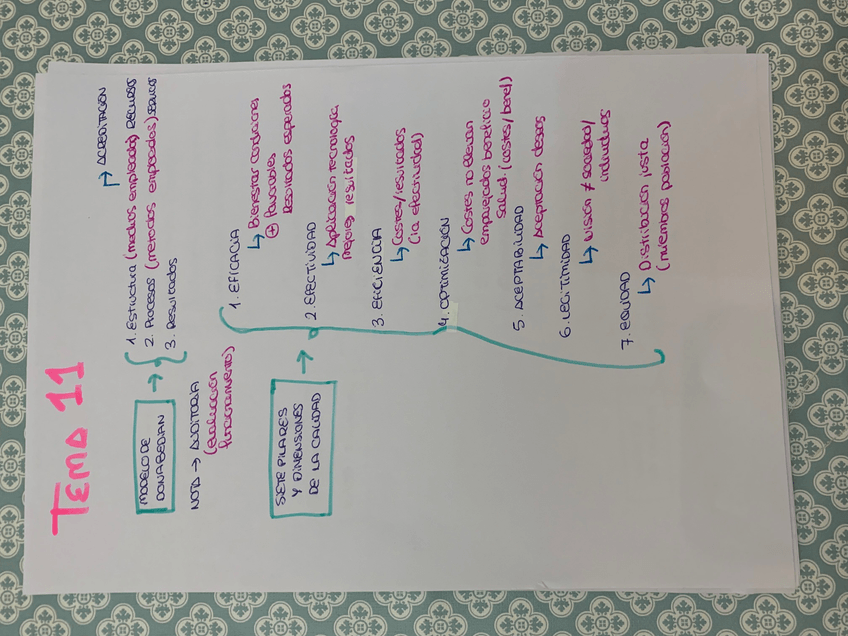 TEMA 11
MODELO DE
DONABEDIAN
→ ACREDITACIÓN
1. Estructura (medios empleados) RECURSOS
2. Procesos (métodos empleados)
3. Resultados
NOTA → AUDITORIA
(evaluación
funcionamiento)
SIETE PILARES
Y DIMENSIONES
DE LA CALIDAD
1. EFICACIA
↳ Bienestar condiciones
+ favorables
Resultados esperados
2. EFECTIVIDAD
↳ Aplicación tecnología
mejores resultados
3. EFICIENCIA
↳ Costes/resultados
(ia efectividad)
4. OPTIMIZACIÓN
↳ Costes no elevan
emparejados beneficio
salud (costes/benef)
5. ACEPTABILIDAD
↳ Aceptación deseos
6. LEGITIMIDAD
↳ Visión ≠ sociedad/
individuos
7. EQUIDAD
↳ Distribución justa
(miembros población)